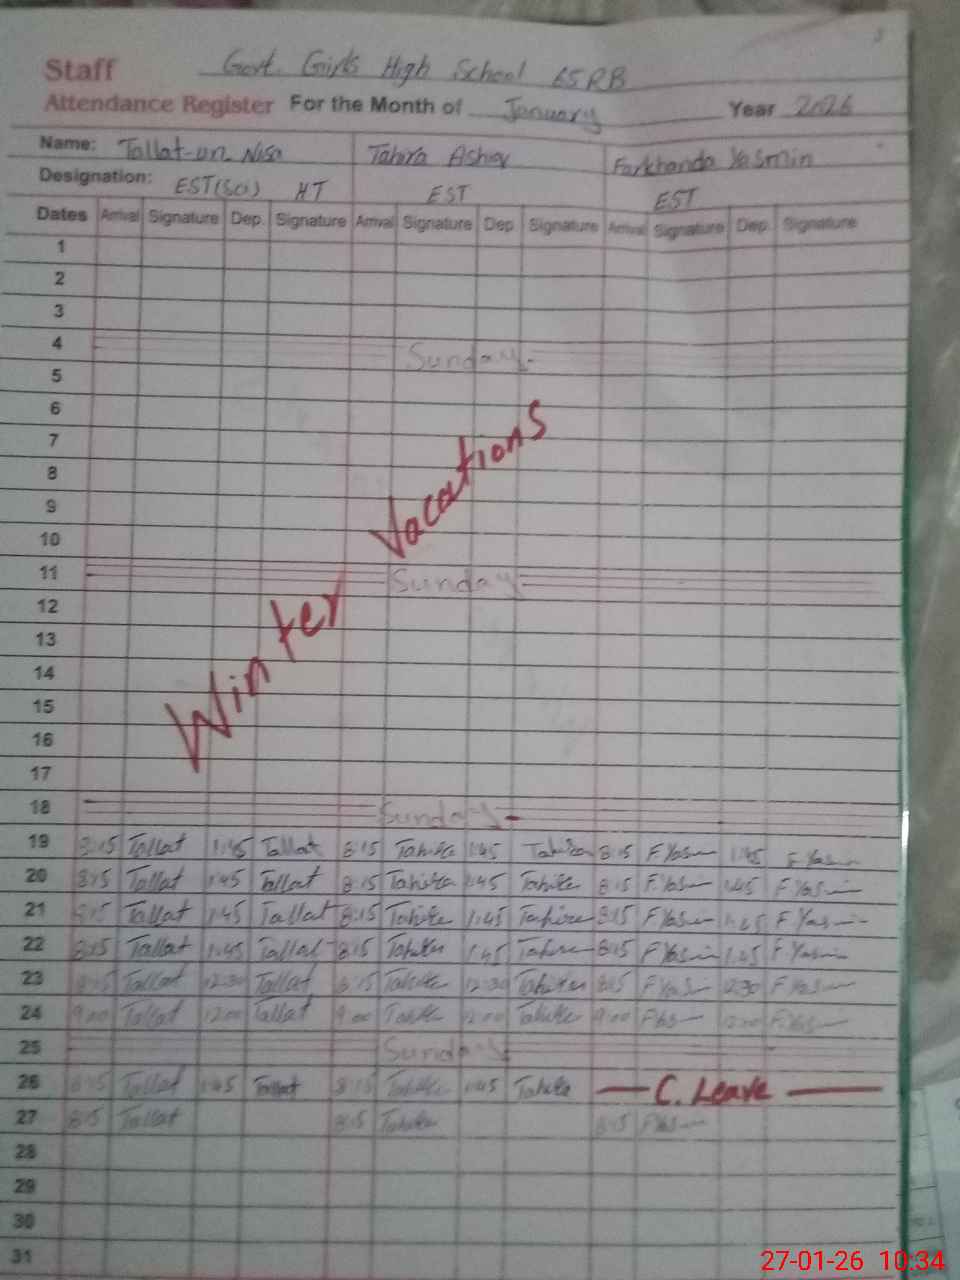 Staff Govt. Girls High School 65RB
Attendance Register For the Month of January Year 2026
Name: Tallat-un-Nisa Tahira Ashraf Farkhanda Yasmin
Designation: EST(Sci) HT EST EST
Dates Arrival Signature Dep. Signature Arrival Signature Dep. Signature Arrival Signature Dep. Signature
1
2
3
4 Sunday
5
6
7
8
9
10
11 Sunday
12
13
14
15
16
17
Winter Vacations
18 Sunday
19 8:15 Tallat 1:45 Tallat 8:15 Tahira 1:45 Tahira 8:15 F.Yasmin 1:45 F.Yasmin
20 8:15 Tallat 1:45 Tallat 8:15 Tahira 1:45 Tahira 8:15 F.Yasmin 1:45 F.Yasmin
21 8:15 Tallat 1:45 Tallat 8:15 Tahira 1:45 Tahira 8:15 F.Yasmin 1:45 F.Yasmin
22 8:15 Tallat 1:45 Tallat 8:15 Tahira 1:45 Tahira 8:15 F.Yasmin 1:45 F.Yasmin
23 8:15 Tallat 12:30 Tallat 8:15 Tahira 12:30 Tahira 8:15 F.Yasmin 12:30 F.Yasmin
24 9:00 Tallat 12:00 Tallat 9:00 Tahira 12:00 Tahira 9:00 F.Yasmin 12:00 F.Yasmin
25 Sunday
26 8:15 Tallat 1:45 Tallat 8:15 Tahira 1:45 Tahira C. Leave
27 8:15 Tallat 8:15 Tahira 8:15 F.Yasmin
28
29
30
31
27-01-26 10:34